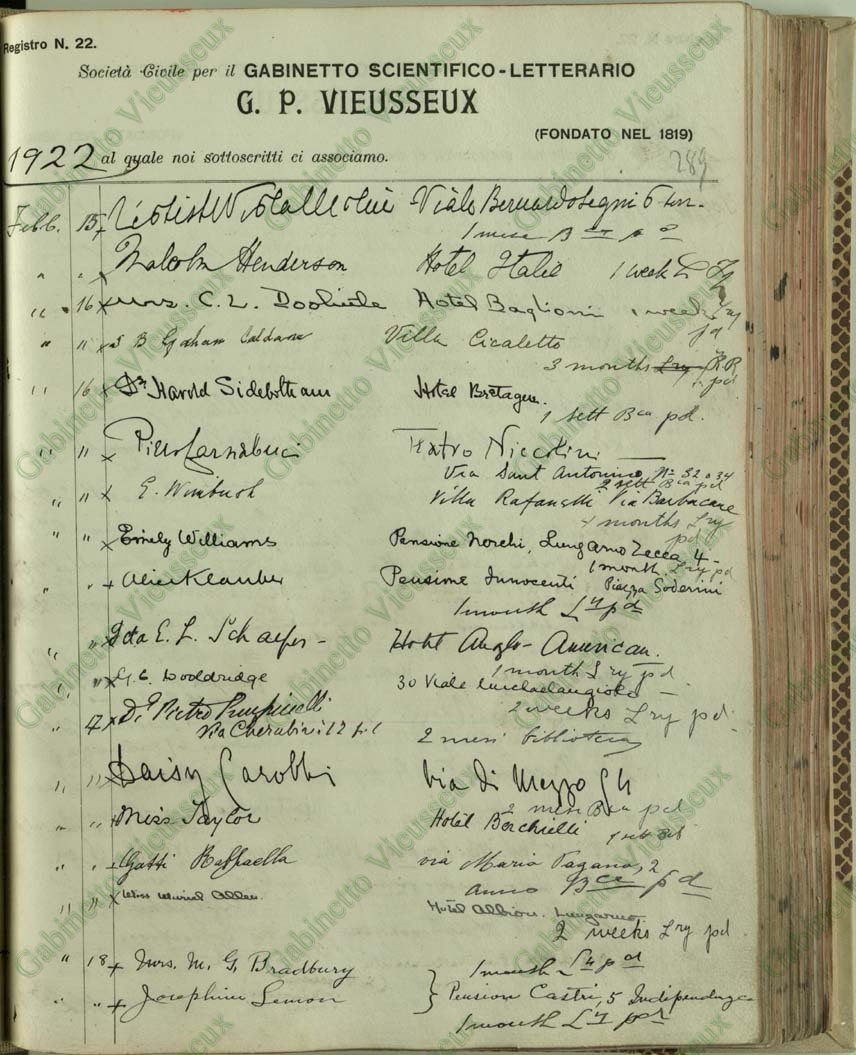 Registro N. 22.
Società Civile per il GABINETTO SCIENTIFICO-LETTERARIO
G. P. VIEUSSEUX
(FONDATO NEL 1819)
1922 al quale noi sottoscritti ci associamo.
289
Febb. 15 Viale Bernardo Segni 6
1 mese
" " Malcolm Henderson Hotel Italie 1 week
" 16 Mrs. C. L. Doolittle Hotel Baglioni 1 week
pd
" " Graham Villa Cicaletto
3 months Lry pd
" 16 Dr. Harold Sidebotham Hotel Bretagne.
1 sett Bca pd.
" " Piero Carnabuci Teatro Niccolini
Via Sant Antonino No 32 34
2 sett Bca pd
" " E. Wimbush Villa Rafanelli Via Barbacane
months Lry
pd
" " Emily Williams Pensione Norchi, Lungarno Zecca 4 -
1 month Lry pd
" " Alice Klauber Pensione Innocenti Piazza Soderini
1 month Lry pd
" " Ida E. L. Schaefer - Hotel Anglo-American.
1 month Lry pd
" " G. C. Wooldridge 30 Viale Michelangiolo -
2 weeks Lry pd.
" 17 Dr. Pietro
Via Cherubini 12
2 mesi biblioteca
" " Daisy Carobbi Via di Mezzo
2 mesi Bca pd
" " Miss Taylor Hotel Berchielli 1 sett Bib
" " Gatti Raffaella via Mario Pagano, 2
anno Bca pd
" " Miss Muriel Allen. Hotel Albion. Lungarno
2 weeks Lry pd.
" 18 Mrs. M. G. Bradbury 1 month Lry pd
" " Josephine Lemon } Pension Castri, 5 Indipendenza
1 month Lry pd
Gabinetto Vieusseux